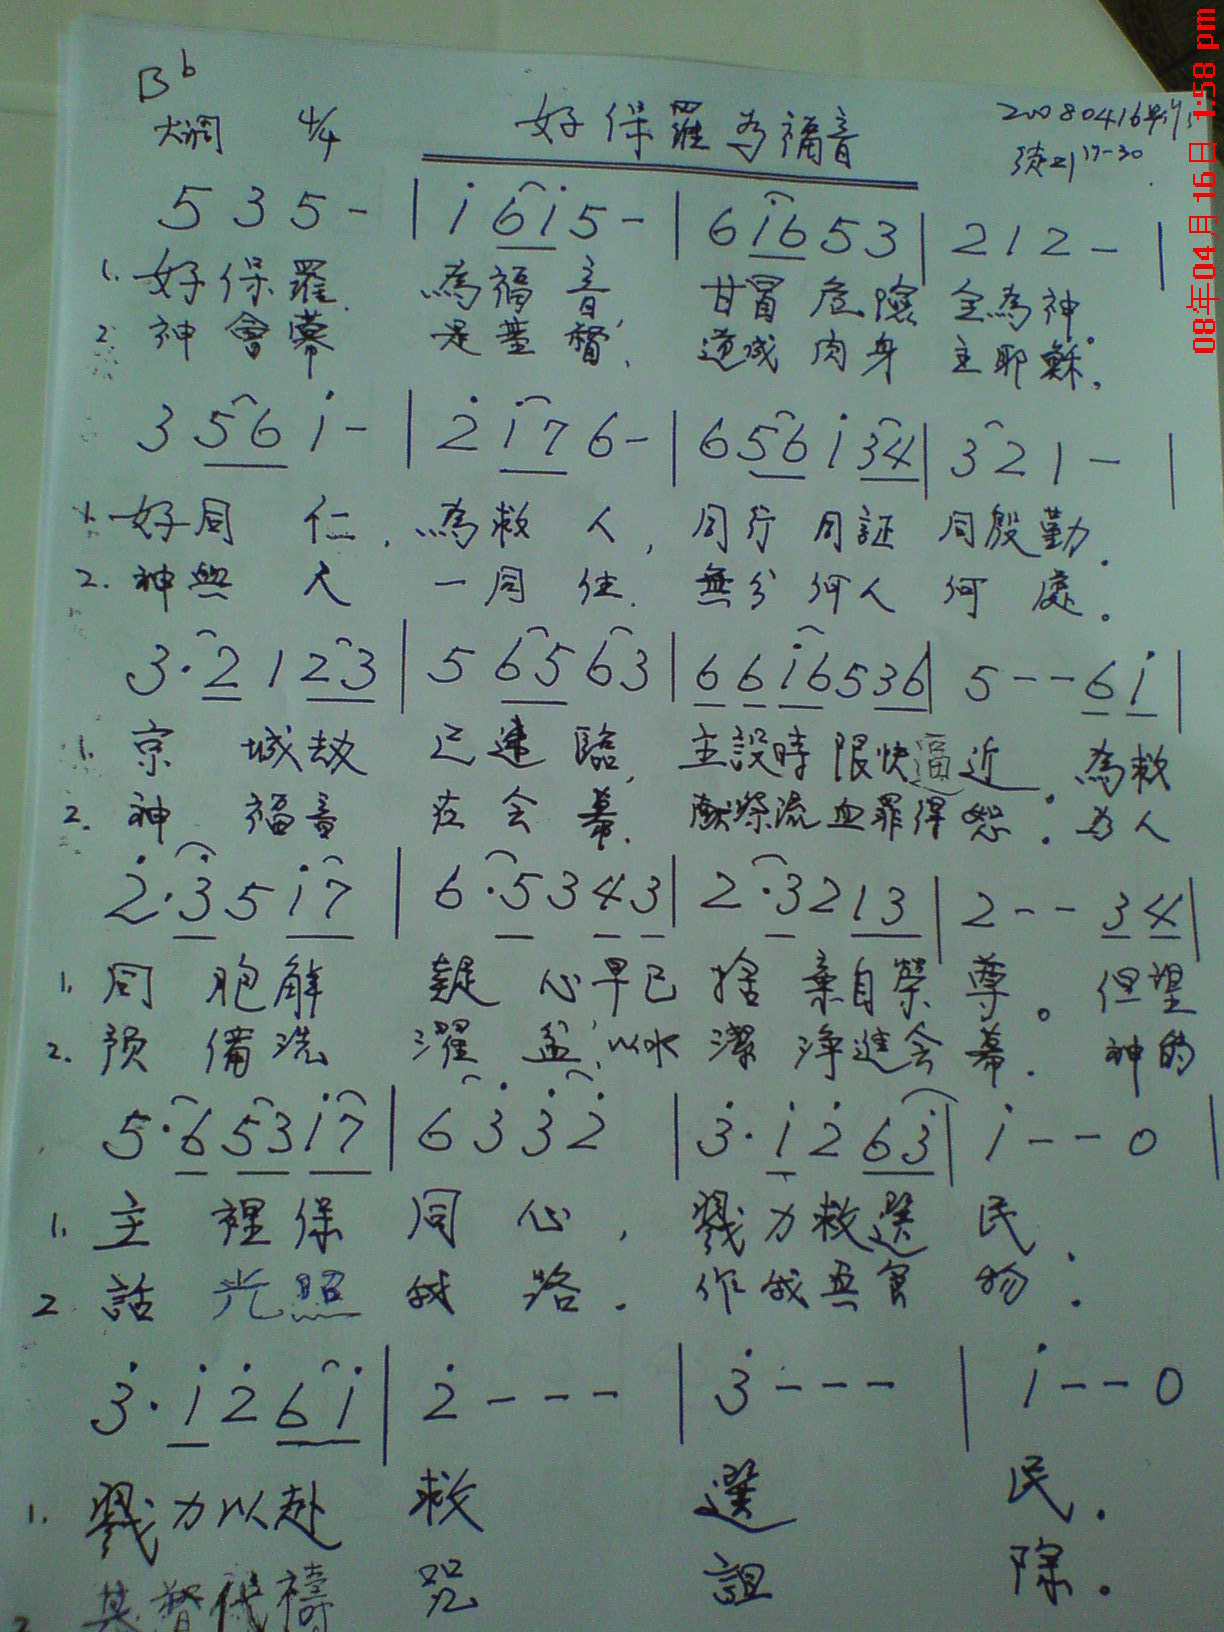 B♭
大调 4/4 好保羅为福音 20080416
21 17-30
08年04月16日 1:58 pm
5 3 5 - | i 6 i 5 - | 6 i 6 5 3 | 2 1 2 - |
1. 好保羅. 為福音, 甘冒危險全為神.
2. 神會幕 是基督, 道成肉身主耶穌.
3 5 6 i - | 2̇ i 7 6 - | 6 5 6 i 3 4 | 3 2 1 - |
1. 好同仁, 為救人, 同行同証同殷勤.
2. 神與人 一同住. 無分何人何處。
3· 2 1 2 3 | 5 6 5 6 3 | 6 6 i 6 5 3 6 | 5 - - 6 i |
1. 京城劫已速臨, 主設時限快逼近. 為救
2. 神福音在会幕. 献祭流血罪得恕. 为人
2̇· 3̇ 5 i 7 | 6· 5 3 4 3 | 2· 3 2 1 3 | 2 - - 3 4 |
1. 同胞解疑心早已捨棄自榮尊。但望
2. 预備洗濯盆, 以水潔净進会幕. 神的
5· 6 5 3 i 7 | 6 3̇ 3̇ 2̇ | 3̇· i 2̇ 6 3̇ | i - - 0 |
1. 主裡保同心, 戮力救選民.
2 話光照我路. 作我灵食物.
3̇· i 2̇ 6 i | 2̇ - - - | 3̇ - - - | i - - 0
1. 戮力以赴救選民.
2. 基督代禱咒詛除.